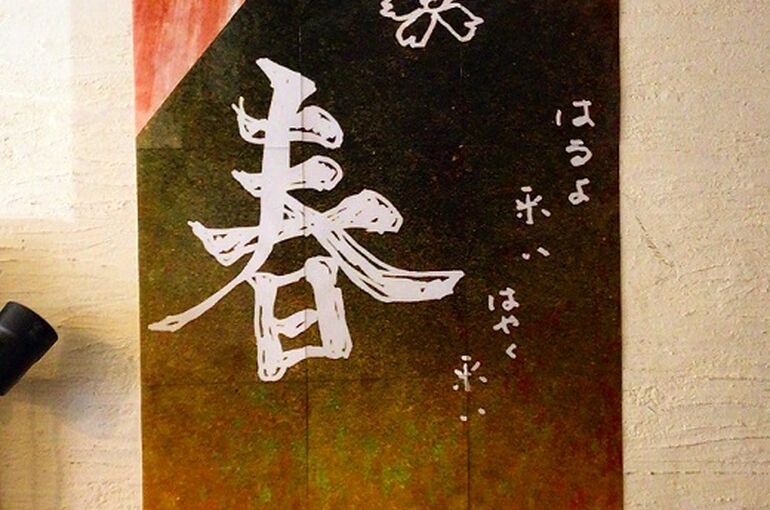 春
はるよ
来い
はやく
来い